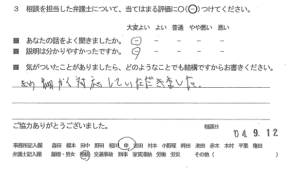 3 相談を担当した弁護士について、当てはまる評価に○(⊖)つけてください。
大変よい よい 普通 やや悪い 悪い
■ あなたの話をよく聞きましたか。
■ 説明は分かりやすかったですか。
■ 気がついたことがありましたら、どのようなことでも結構ですからお書きください。
細かく対応していただきました。
ご協力ありがとうございました。
相談日 04.9.12
事務所記入欄
弁護士記入欄 離婚・男女 相続 交通事故 刑事 家賃滞納 労働 労災 その他( )